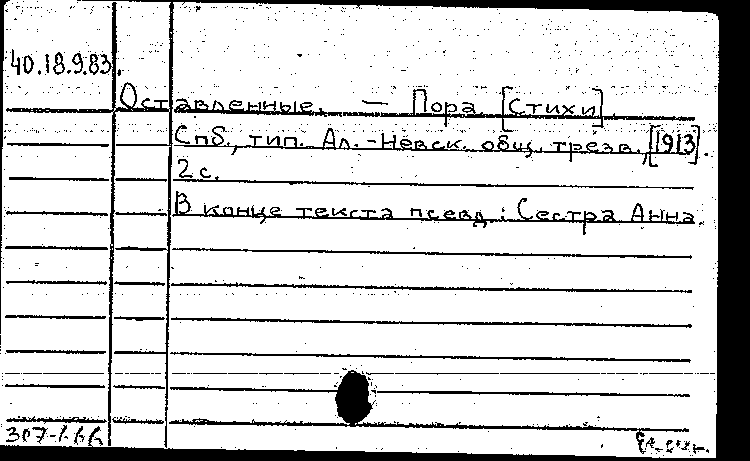 40.18.9.83.
Оставленные. — Пора [Стихи]
Спб., тип. Ал.-Невск. общ. трезв., [1913].
2 с.
В конце текста псевд.: Сестра Анна.